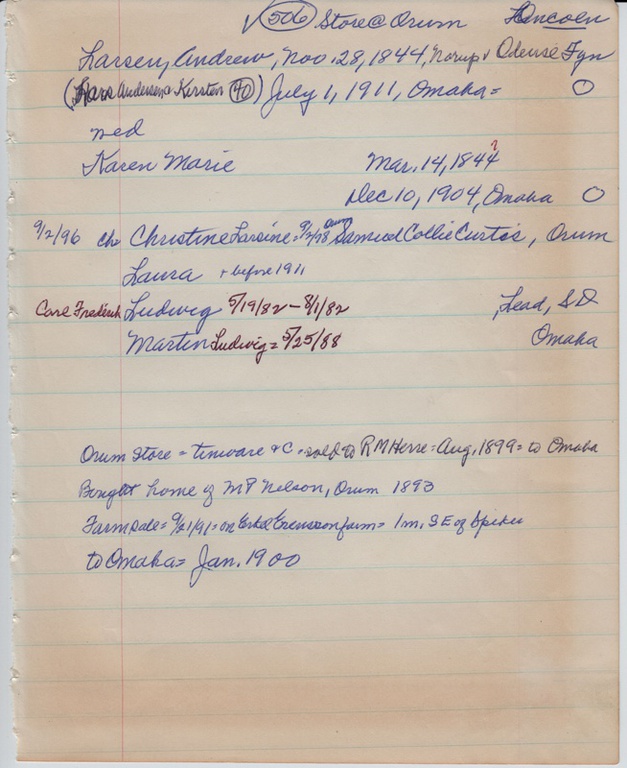 √ 506 Store @ Orum Lincoln
Larsen, Andrew, Nov. 28, 1844, Norup v Odense Fyn
(Lars Andersen & Kirsten 40) July 1, 1911, Omaha = O
med
Karen Marie Mar. 14, 1844 ?
Dec 10, 1904, Omaha O
9/2/96 ch Christine Larsine = 9/2/98 Orum Samuel Collie Curtis, Orum
Laura + before 1911
Carl Frederik Ludwig 5/19/82 – 8/1/82 Lead, SD
Martin Ludwig = 5/25/88 Omaha
Orum Store = tinware & C. sold to R M Herre = Aug, 1899 = to Omaha
Bought home of M P Nelson, Orum 1893
Farm sale = 9/21/91 = on farm = 1 m. SE of Spiker
to Omaha = Jan. 1900